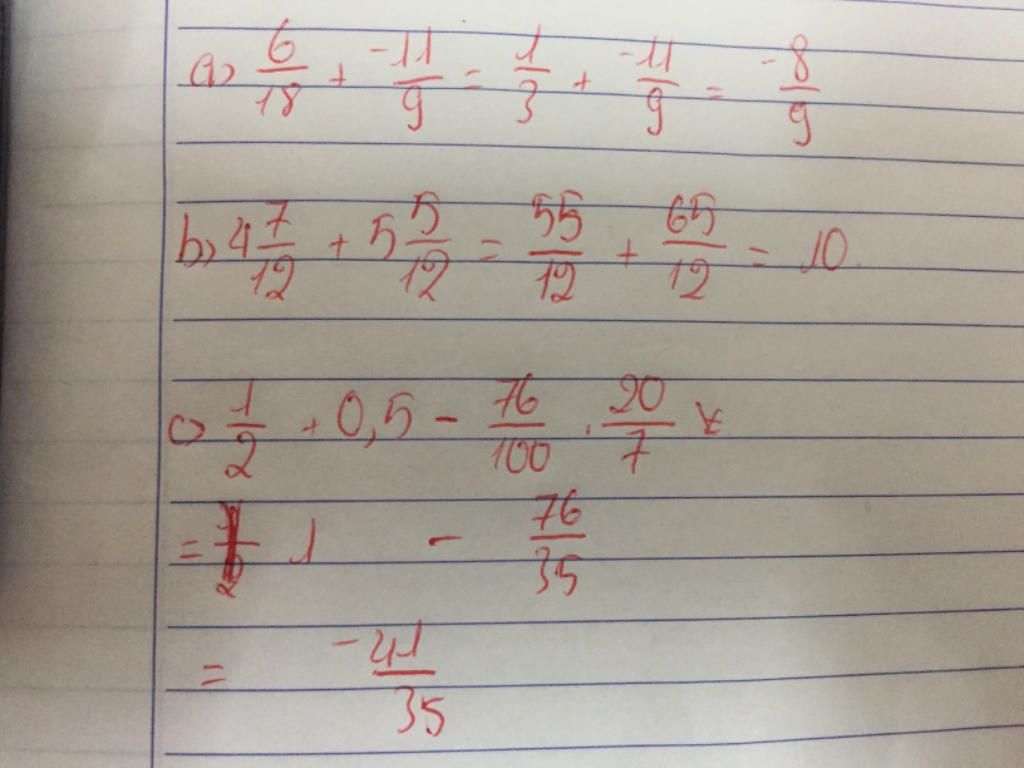 a) 6/18 + -11/9 = 1/3 + -11/9 = -8/9
b) 4 7/12 + 5 5/12 = 55/12 + 65/12 = 10
c) 1/2 + 0,5 - 76/100 . 20/7
= 1 - 76/35
= -41/35